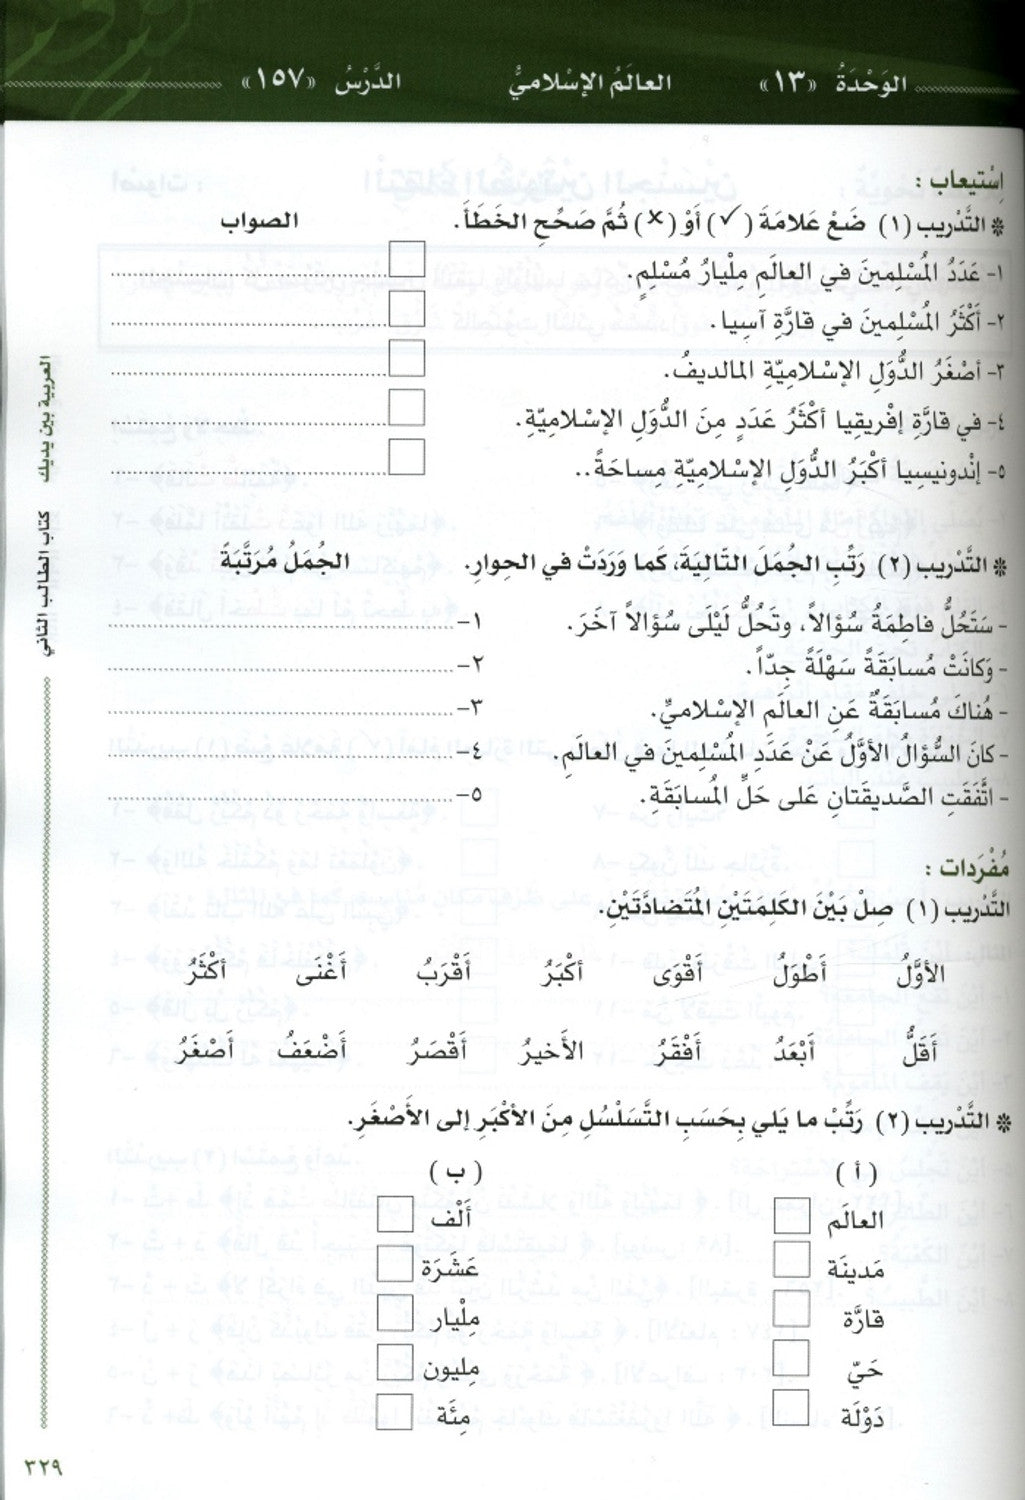 الوَحْدَةُ «١٣» العالَمُ الإسْلاميُّ الدَّرْسُ «١٥٧»
اِسْتيعاب :
* التَّدْريب (١) ضَعْ عَلامَةَ (✓) أوْ (×) ثُمَّ صَحِّحِ الخَطَأَ. الصواب
١- عَدَدُ المُسْلِمينَ في العالَمِ مِلْيارُ مُسْلِمٍ.
٢- أكْثَرُ المُسْلِمينَ في قارَّةِ آسِيا.
٣- أصْغَرُ الدُّوَلِ الإسْلاميّةِ المالديفُ.
٤- في قارَّةِ إفْريقِيا أكْثَرُ عَدَدٍ مِنَ الدُّوَلِ الإسْلاميّةِ.
٥- إنْدونيسِيا أكْبَرُ الدُّوَلِ الإسْلاميّةِ مِساحَةً..
* التَّدْريب (٢) رَتِّبِ الجُمَلَ التّالِيَةَ، كَما وَرَدَتْ في الحِوارِ. الجُمَلُ مُرَتَّبَةً
- سَتَحُلُّ فاطِمَةُ سُؤالاً، وتَحُلُّ لَيْلَى سُؤالاً آخَرَ. ١-
- وَكانَتْ مُسابَقَةً سَهْلَةً جِدّاً. ٢-
- هُناكَ مُسابَقَةٌ عَنِ العالَمِ الإسْلاميِّ. ٣-
- كانَ السُّؤالُ الأوَّلُ عَنْ عَدَدِ المُسْلِمينَ في العالَمِ. ٤-
- اتَّفَقَتِ الصَّديقَتانِ عَلى حَلِّ المُسابَقَةِ. ٥-
مُفْرَدات :
التَّدْريب (١) صِلْ بَيْنَ الكَلِمَتَيْنِ المُتَضادَّتَيْنِ.
الأوَّلُ أَطْوَلُ أَقْوَى أكْبَرُ أَقْرَبُ أَغْنَى أكْثَرُ
أَقَلُّ أَبْعَدُ أَفْقَرُ الأَخيرُ أَقْصَرُ أَضْعَفُ أَصْغَرُ
* التَّدْريب (٢) رَتِّبْ ما يَلي بِحَسَبِ التَّسَلْسُلِ مِنَ الأكْبَرِ إلى الأَصْغَرِ.
(أ) (ب)
العالَم أَلْف
مَدينَة عَشَرَة
قارَّة مِلْيار
حَيّ مِليون
دَوْلَة مِئَة
العربية بين يديك كتاب الطالب الثاني
٣٢٩